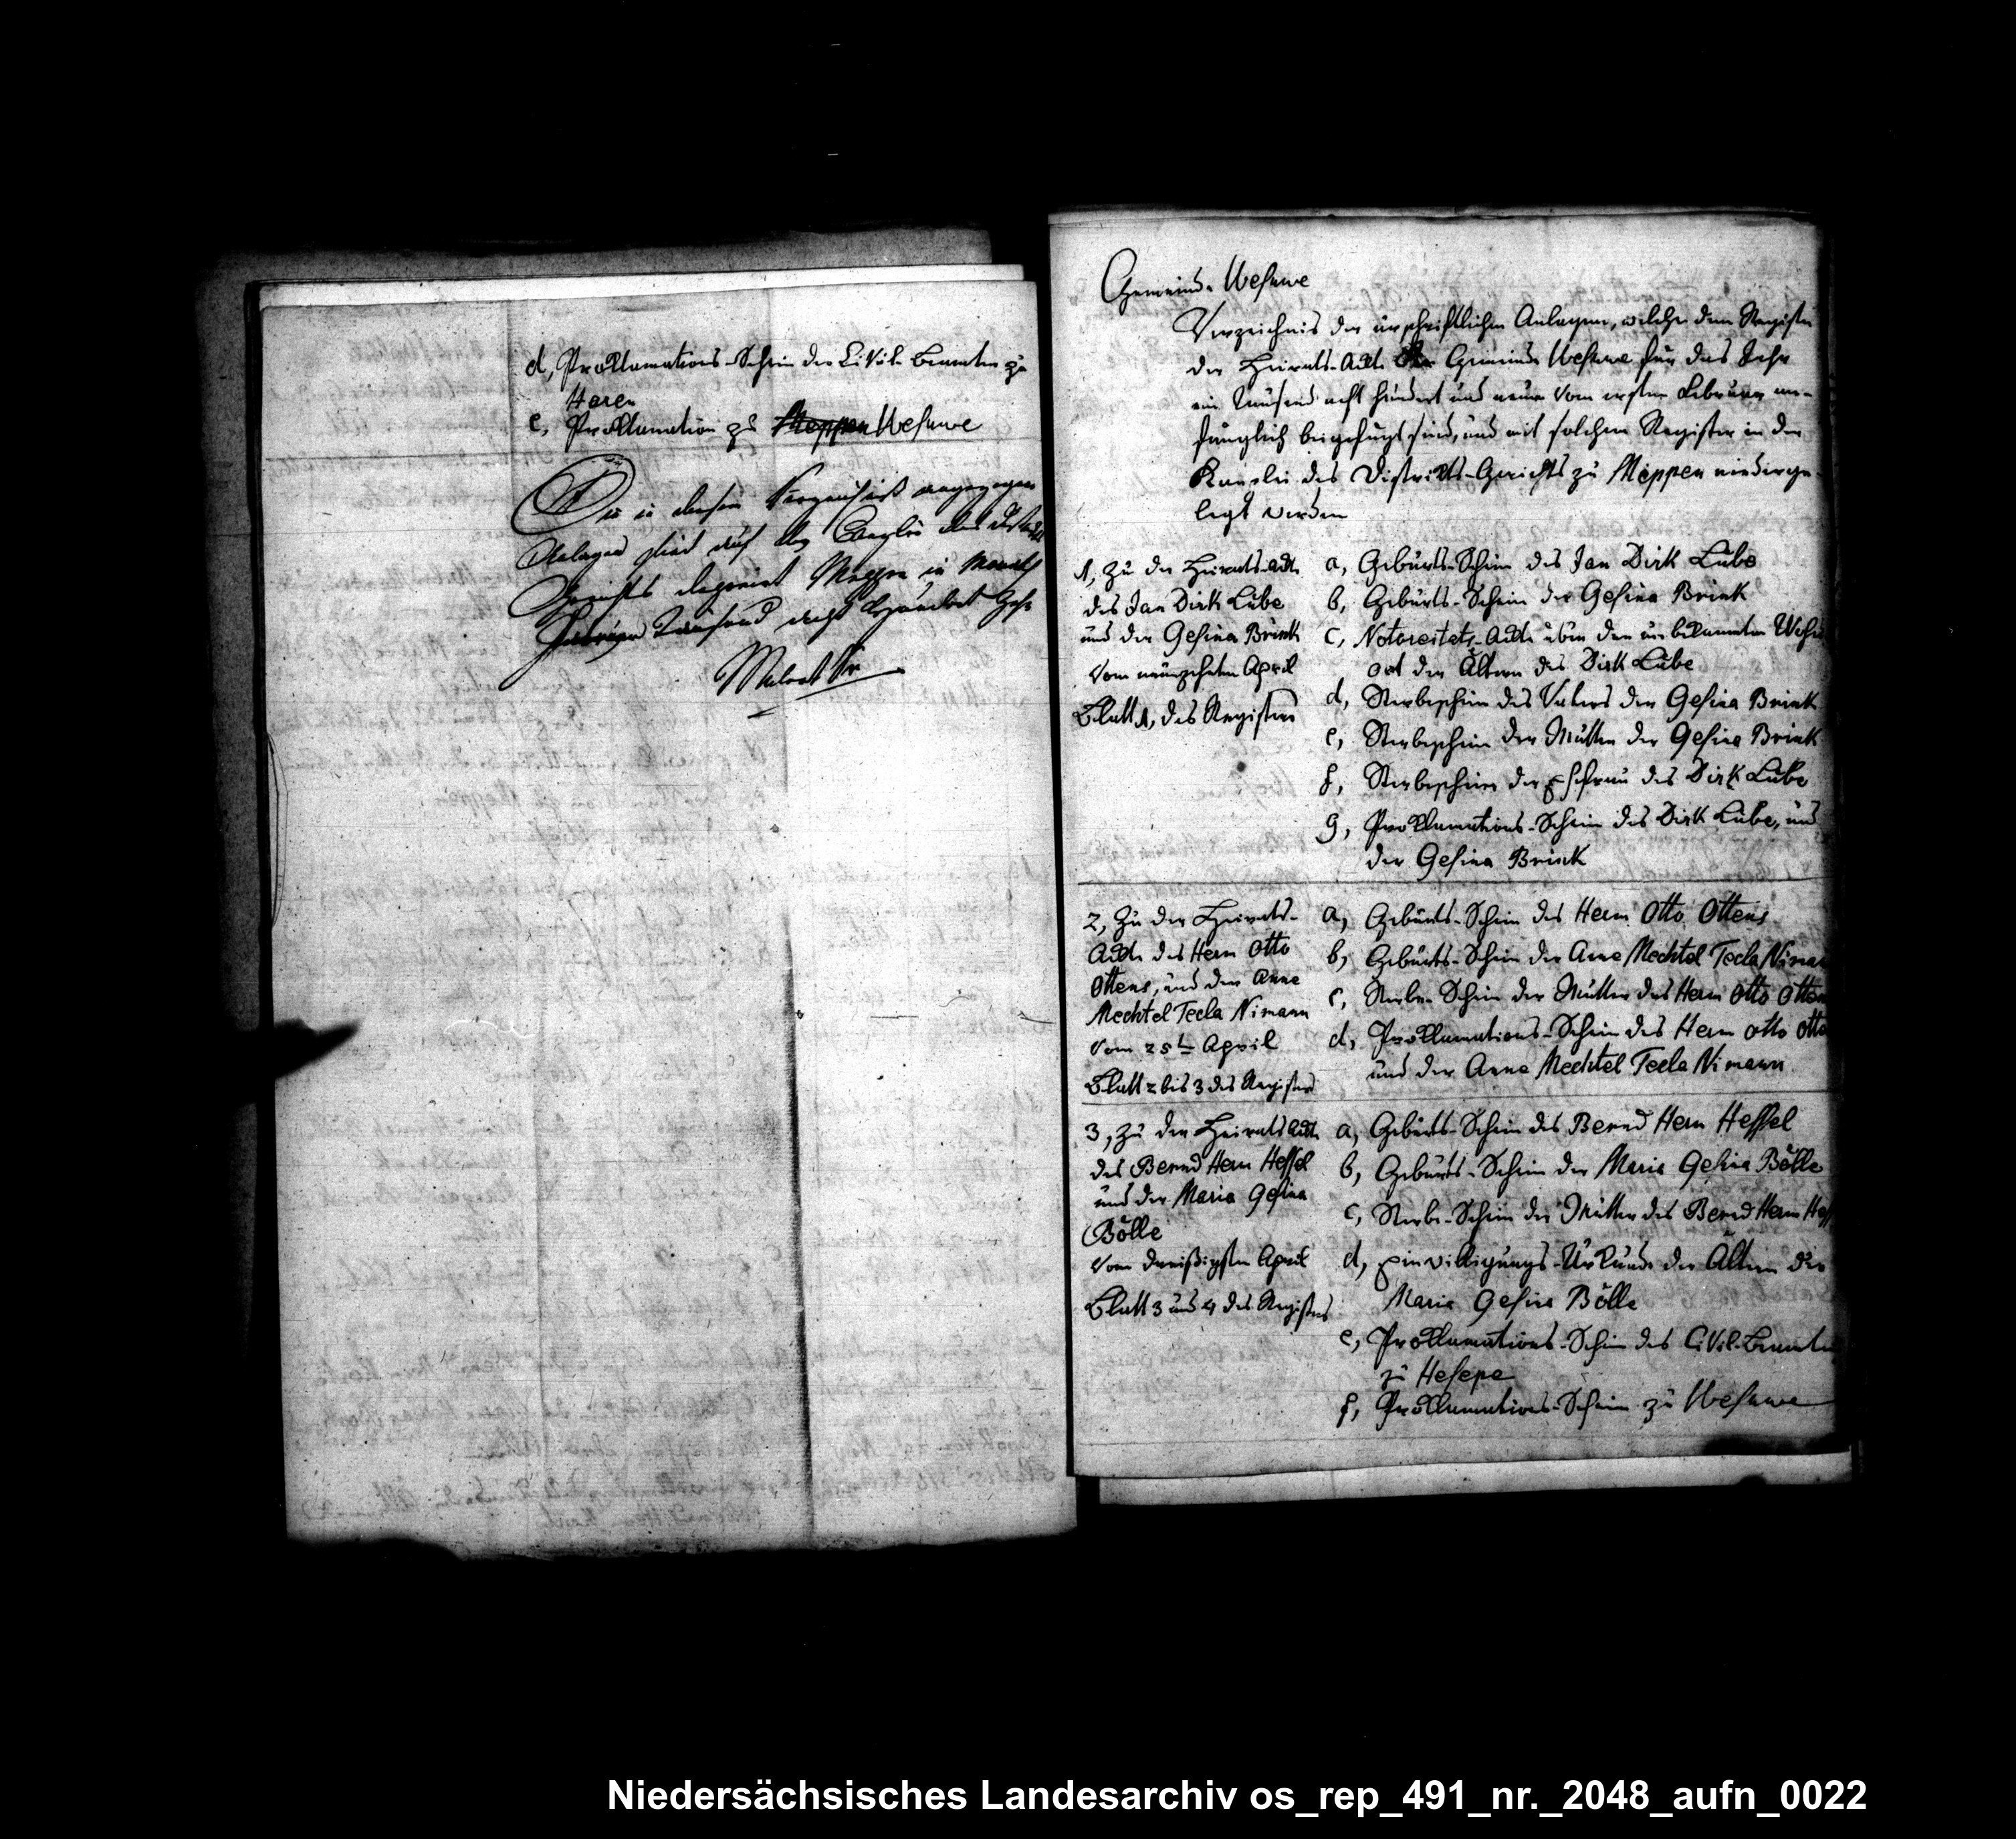 d, Proklamations-Schein des Civil-Beamten zu
Haren
e, Proklamation zu Meppen Wesuwe
Die in diesem Verzeichniß angezogene
Anlagen sind auf der Canzlei des Distrikts
Gerichts deponirt Meppen im Monath
Februar Tausend acht hundert Zehn
Gemeinde Wesuwe
Verzeichnis der urschriftlichen Anlagen, welche dem Register
der Heirats-Ackte der Gemeinde Wesuwe für das Jahr
ein Tausend acht hundert und neun vom ersten Februar an-
fänglich beigefügt sind, und mit solchem Register in der
Kanzlei des Distrikts-Gerichts zu Meppen niederge-
legt werden
1, Zu der Heirats-Ackte
des Jan Dirk Lübe
und der Gesina Brink
vom neunzehnten April
Blatt 1, des Registers
a, Geburts-Schein des Jan Dirk Lübe
b, Geburts-Schein der Gesina Brink
c, Notorietets-Ackte über den unbekannten Wohn
ort der Ältern des Dirk Lübe
d, Sterbeschein des Vaters der Gesina Brink
e, Sterbeschein der Mutter der Gesina Brink
f, Sterbeschein der Ehefrau des Dirk Lübe
g, Proklamations-Schein des Dirk Lübe, und
der Gesina Brink
2, Zu der Heirats-
Ackte des Herm Otto
Ottens, und der Anne
Mechtel Tecla Nimann
vom 25t April
Blatt 2 bis 3 des Registers
a, Geburts-Schein des Herm Otto Ottens
b, Geburts-Schein der Anne Mechtel Tecla Niman
c, Sterbe-Schein der Mutter des Herm Otto Otten
d, Proklamations-Schein des Herm Otto Otto
und der Anne Mechtel Tecla Nimann
3, Zu der Heirats Ackte
des Bernd Herm Hessel
und der Maria Gesina
Bölle
vom dreißigsten April
Blatt 3 und 4 des Registers
a, Geburts-Schein des Bernd Herm Hessel
b, Geburts-Schein der Maria Gesina Bölle
c, Sterbe-Schein der Mutter des Bernd Herm Hess
d, Einwilligungs-Urkunde der Ältern der
Maria Gesina Bölle
e, Proklamations-Schein des Civil-Beamten
zu Hesepe
f, Proklamations-Schein zu Wesuwe
Niedersächsisches Landesarchiv os_rep_491_nr._2048_aufn_0022